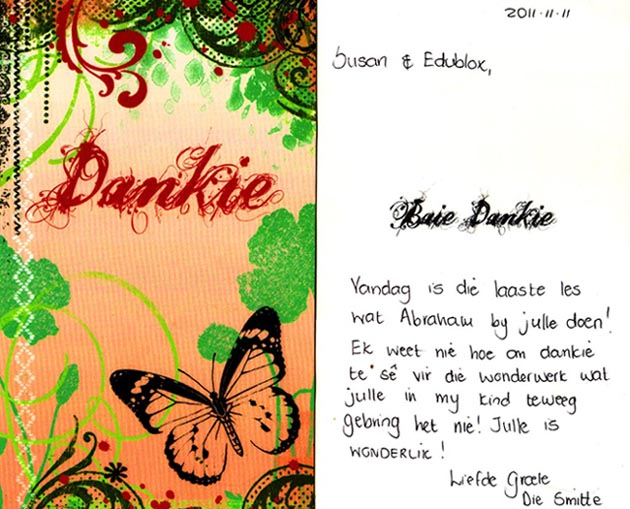 Dankie
2011·11·11
Susan & Edublox,
Baie Dankie
Vandag is die laaste les
wat Abraham by julle doen!
Ek weet nie hoe om dankie
te sê vir die wonderwerk wat
julle in my kind teweeg
gebring het nie! Julle is
WONDERLIK!
Liefde Groete
Die Smitte